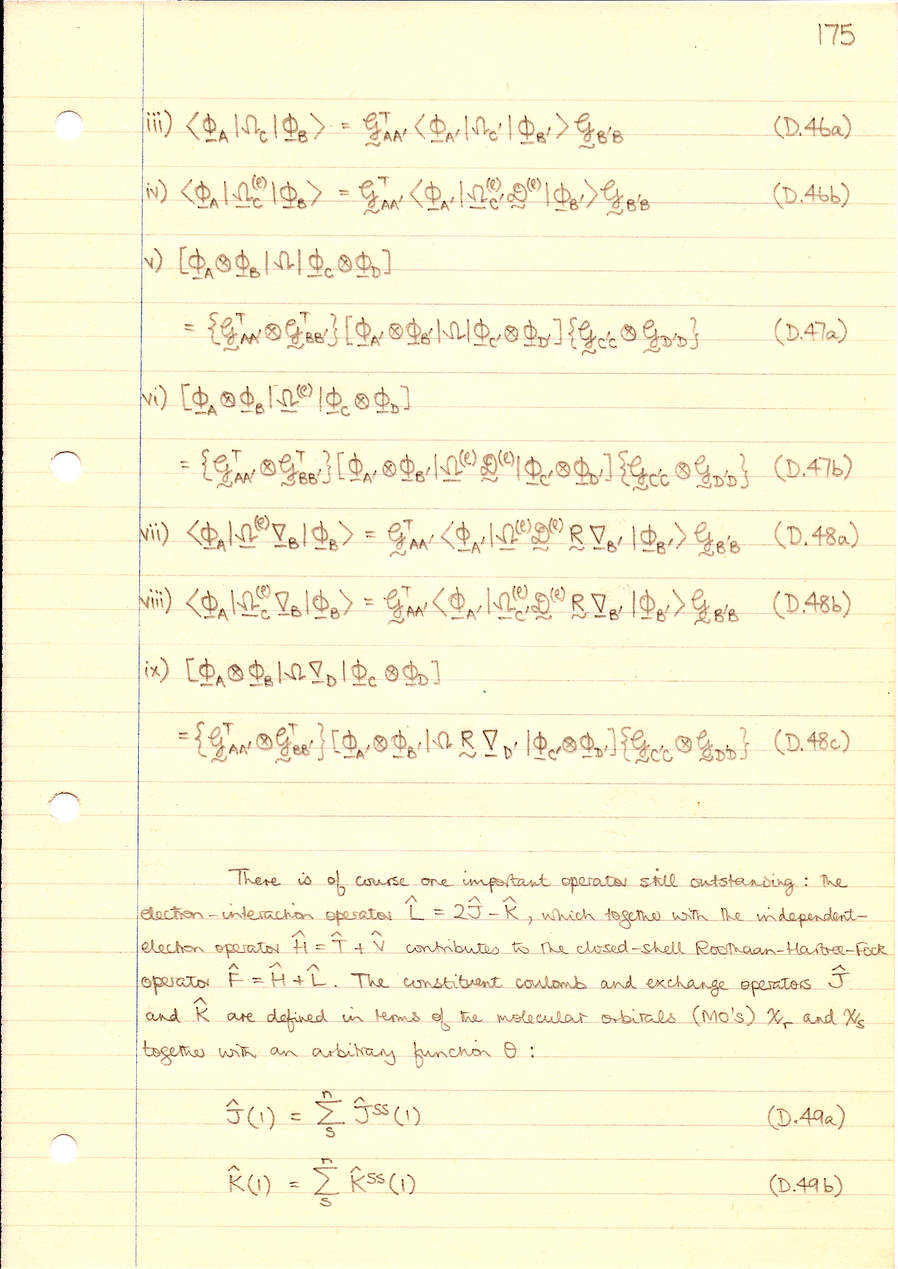 175
iii) ⟨Φ_A|Ω_C|Φ_B⟩ = 𝒢^T_AA′ ⟨Φ_A′|Ω_C′|Φ_B′⟩ 𝒢_B′B (D.46a)
iv) ⟨Φ_A|Ω_C^(ℓ)|Φ_B⟩ = 𝒢^T_AA′ ⟨Φ_A′|Ω_C′^(ℓ) 𝒟^(ℓ)|Φ_B′⟩ 𝒢_B′B (D.46b)
v) [Φ_A⊗Φ_B|Ω|Φ_C⊗Φ_D]
= {𝒢^T_AA′⊗𝒢^T_BB′}[Φ_A′⊗Φ_B′|Ω|Φ_C′⊗Φ_D′]{𝒢_C′C⊗𝒢_D′D} (D.47a)
vi) [Φ_A⊗Φ_B|Ω^(ℓ)|Φ_C⊗Φ_D]
= {𝒢^T_AA′⊗𝒢^T_BB′}[Φ_A′⊗Φ_B′|Ω^(ℓ) 𝒟^(ℓ)|Φ_C′⊗Φ_D′]{𝒢_C′C⊗𝒢_D′D} (D.47b)
vii) ⟨Φ_A|Ω^(ℓ)∇_B|Φ_B⟩ = 𝒢^T_AA′ ⟨Φ_A′|Ω^(ℓ) 𝒟^(ℓ) R ∇_B′|Φ_B′⟩ 𝒢_B′B (D.48a)
viii) ⟨Φ_A|Ω_C^(ℓ)∇_B|Φ_B⟩ = 𝒢^T_AA′ ⟨Φ_A′|Ω_C′^(ℓ) 𝒟^(ℓ) R ∇_B′|Φ_B′⟩ 𝒢_B′B (D.48b)
ix) [Φ_A⊗Φ_B|Ω∇_D|Φ_C⊗Φ_D]
= {𝒢^T_AA′⊗𝒢^T_BB′}[Φ_A′⊗Φ_B′|Ω R ∇_D′|Φ_C′⊗Φ_D′]{𝒢_C′C⊗𝒢_D′D} (D.48c)
There is of course one important operator still outstanding: the
electron-interaction operator L̂ = 2Ĵ-K̂, which together with the independent-
electron operator Ĥ = T̂ + V̂ contributes to the closed-shell Roothaan-Hartree-Fock
operator F̂ = Ĥ + L̂. The constituent coulomb and exchange operators Ĵ
and K̂ are defined in terms of the molecular orbitals (MO's) χ_r and χ_s
together with an arbitrary function θ:
Ĵ(1) = Σ_s^n Ĵ^ss(1) (D.49a)
K̂(1) = Σ_s^n K̂^ss(1) (D.49b)